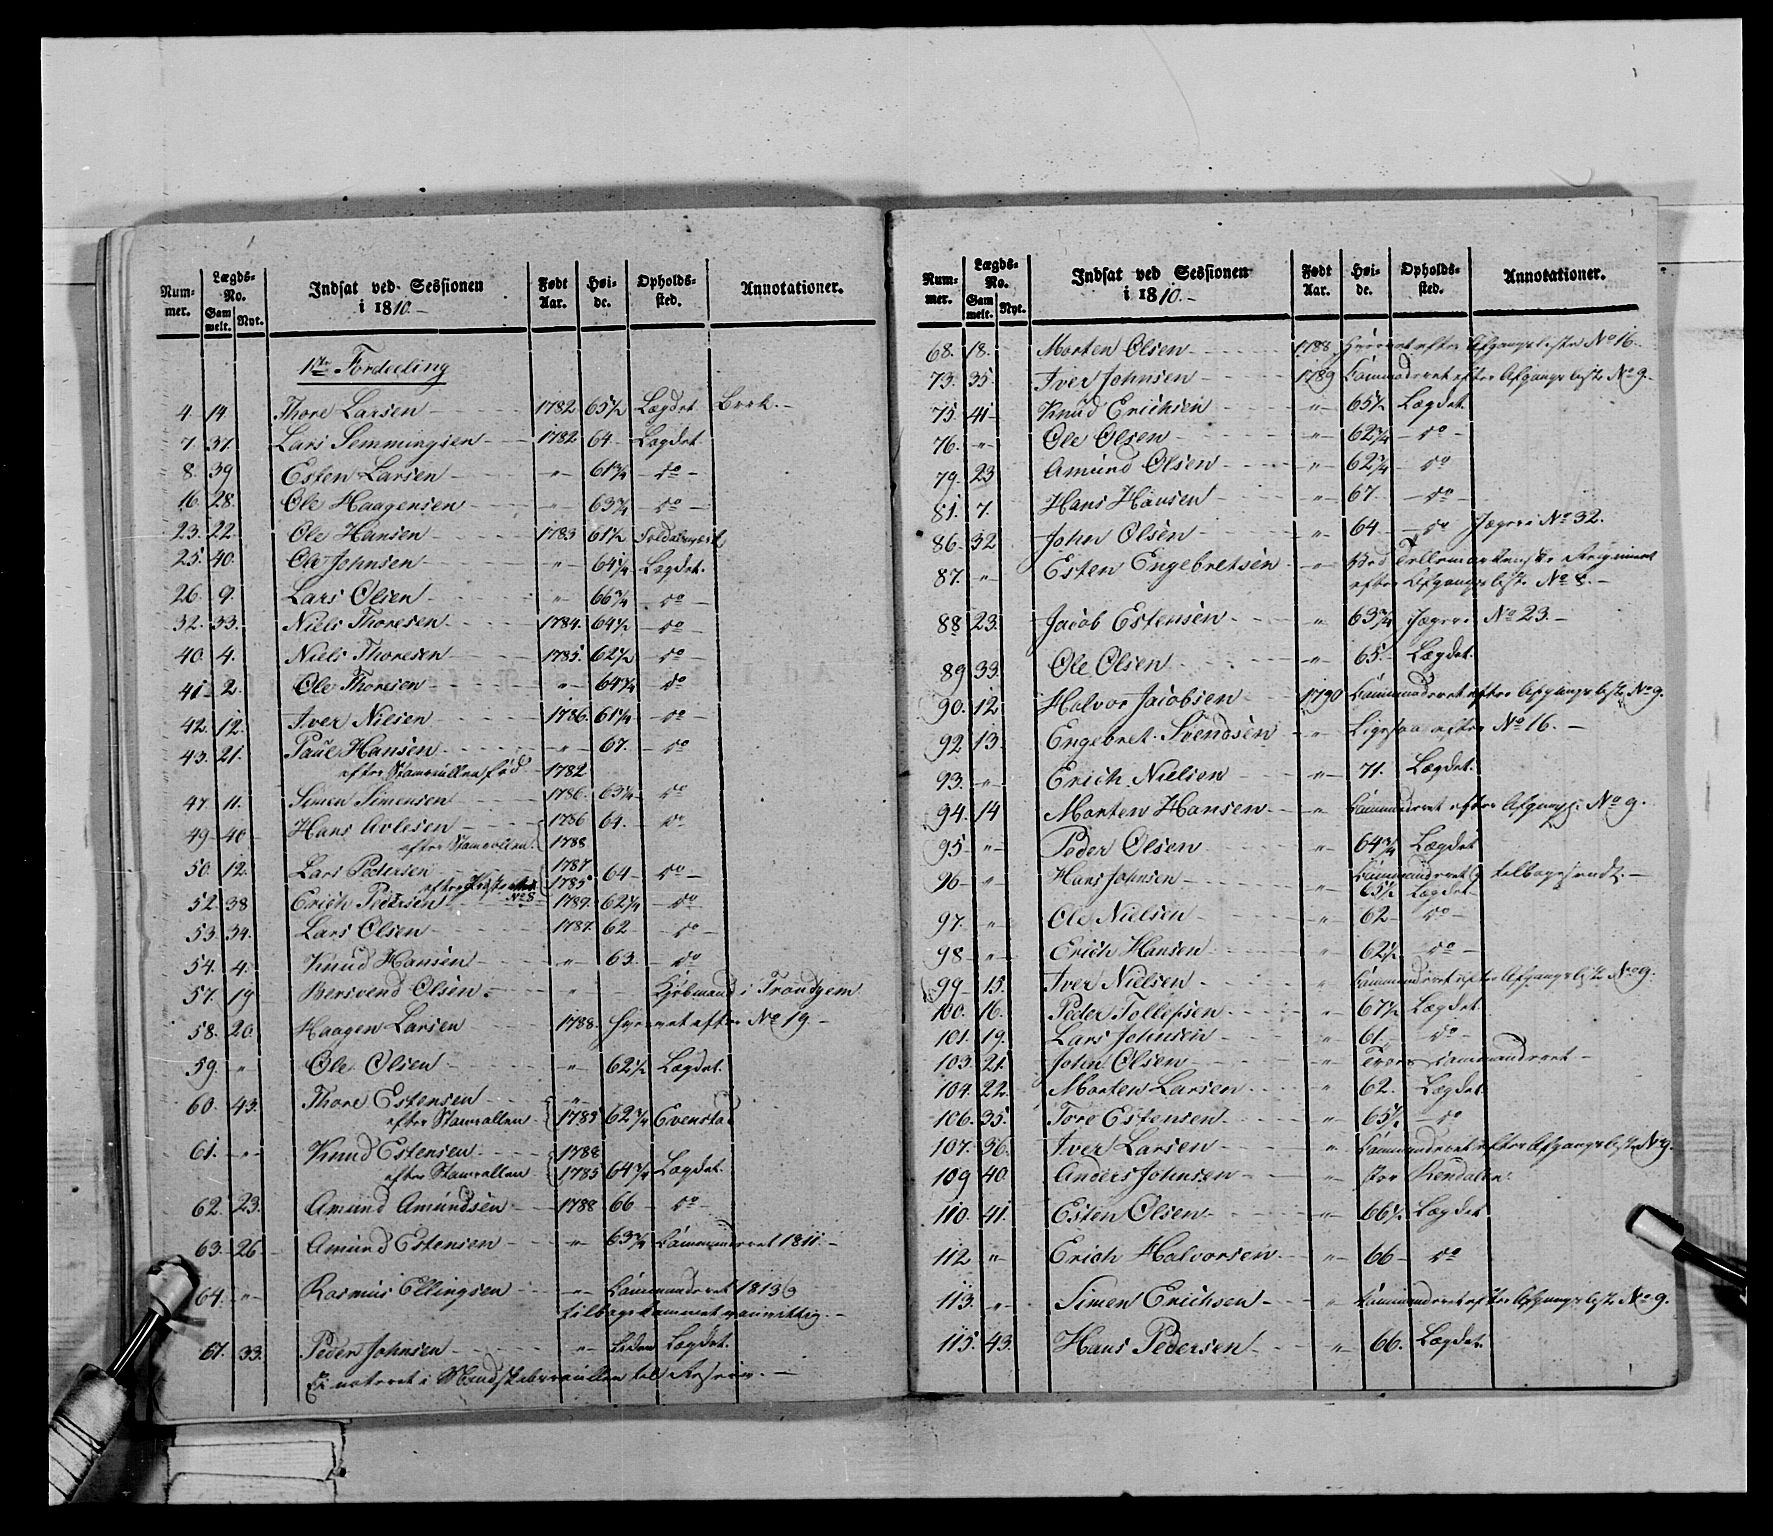 Num-mer. Lægds-No. Gammelt. Nyt. Indsat ved Sessionen i 1810.- Født Aar. Høi-de. Opholds-sted. Annotationer.
1ste Fordeeling
4. 14. Thore Larsen 1782 65½ Lægdet
7. 37. Lars Semmingsen 1782 64 Lægdet
8. 39 Esten Larsen " 61¾ do
16. 28. Ole Haagensen " 63¾ do
23. 22. Ole Hansen 1783 61½
25. 40. Ole Johnsen " 64¼ Lægdet.
26. 9. Lars Olsen " 66¾ do
32. 33. Niels Thoresen 1784. 64½ do
40. 4. Niels Thoresen 1785. 62½ do
41. 2. Ole Thoresen " 64¾ do
42. 12. Iver Nilsen 1786. 61¼ do
43. 21. Paul Hansen " 67. do
efter Stamrullen fød 1782
47. 11. Simen Simensen 1786. 63¼ do
49. 40 Hans Avlesen 1786 64. do
efter Stamrollen 1788
50. 12. Lars Pedersen 1787 64 do
efter No 8 1785
52. 38 Erich Pedersen 1787. 62¼ do
53. 34. Lars Olsen 1787. 62 do
54. 4. Knud Hansen " 63. do
57. 19 Bersvend Olsen " Kjøbmand i Trondhjem
58. 20. Haagen Larsen 1788. efter No 19.
59. " Ole Olsen " 62½ Lægdet.
60. 43. Thore Estensen "
efter Stamrollen 1783 62¾ Evenstad
61. " Knud Estensen 1788
efter Stamrollen 1785 64¾ Lægdet.
62. 23. Amund Amundsen 1788 66 do
63. 26 Amund Estensen " 63¾ Commanderet 1811.
64. " Rasmus Ellingsen " Commanderet 1813
tilbagekommet
67. 33. Peder Johnsen " Liden Lægdet.
Er noteret i Mandskabsrullen til
Num-mer. Lægds-No. Gammelt. Nyt. Indsat ved Sessionen i 1810.- Født Aar. Høi-de. Opholds-sted. Annotationer.
68. 18. Morten Olsen 1788 efter Afgangsliste No 16.
73. 35. Iver Johnsen 1789 Commanderet efter Afgangsliste No 9.
75. 41 Knud Erichsen " 65½ Lægdet.
76. " Ole Olsen " 62¾ do
79. 23 Amund Olsen " 62¾ do
81. 7. Hans Hansen " 67. do
86. 32 John Olsen " 64. do Jæger No 32.
87. " Esten Engebretsen " Ved Tellemarkenske Regiment
efter Afgangsliste No 8.
88 23. Jacob Estensen " 63¾ Jæger No 23.
89 33. Ole Olsen " 65. Lægdet.
90. 12 Halvor Jacobsen 1790 Commanderet efter Afgangsliste No 9.
92. 13. Engebret Svendsen " Ligesaa efter No 16.
93. " Erich Nielsen " 71. Lægdet.
94. 14 Morten Hansen " Commanderet efter Afgangsl. No 9.
95 " Peder Olsen " 64¾ Lægdet
96 " Hans Johnsen " Commanderet tilbagesendt
65½ Lægdet
97. " Ole Nielsen " 62 do
98 " Erich Hansen " 62½ do
99 15. Iver Nielsen " Commanderet efter Afgangsliste No 9.
100. 16. Peder Tollefsen " 67½ Lægdet.
101. 19. Lars Johnsen " 61. do
103. 21. John Olsen " commanderet
104. 22. Morten Larsen " 62. Lægdet
106. 35. Tore Estensen " 65½ do
107. 36. Iver Larsen " Commanderet efter Afgangsliste No 9.
109 40. Anders Johnsen " Rendalen.
110. 41. Esten Olsen " 66½ Lægdet
112 " Erich Halvorsen " 66 do
113. " Simen Erichsen " Commanderet efter Afgangsliste No 9.
115. 43. Hans Pedersen " 66. Lægdet.